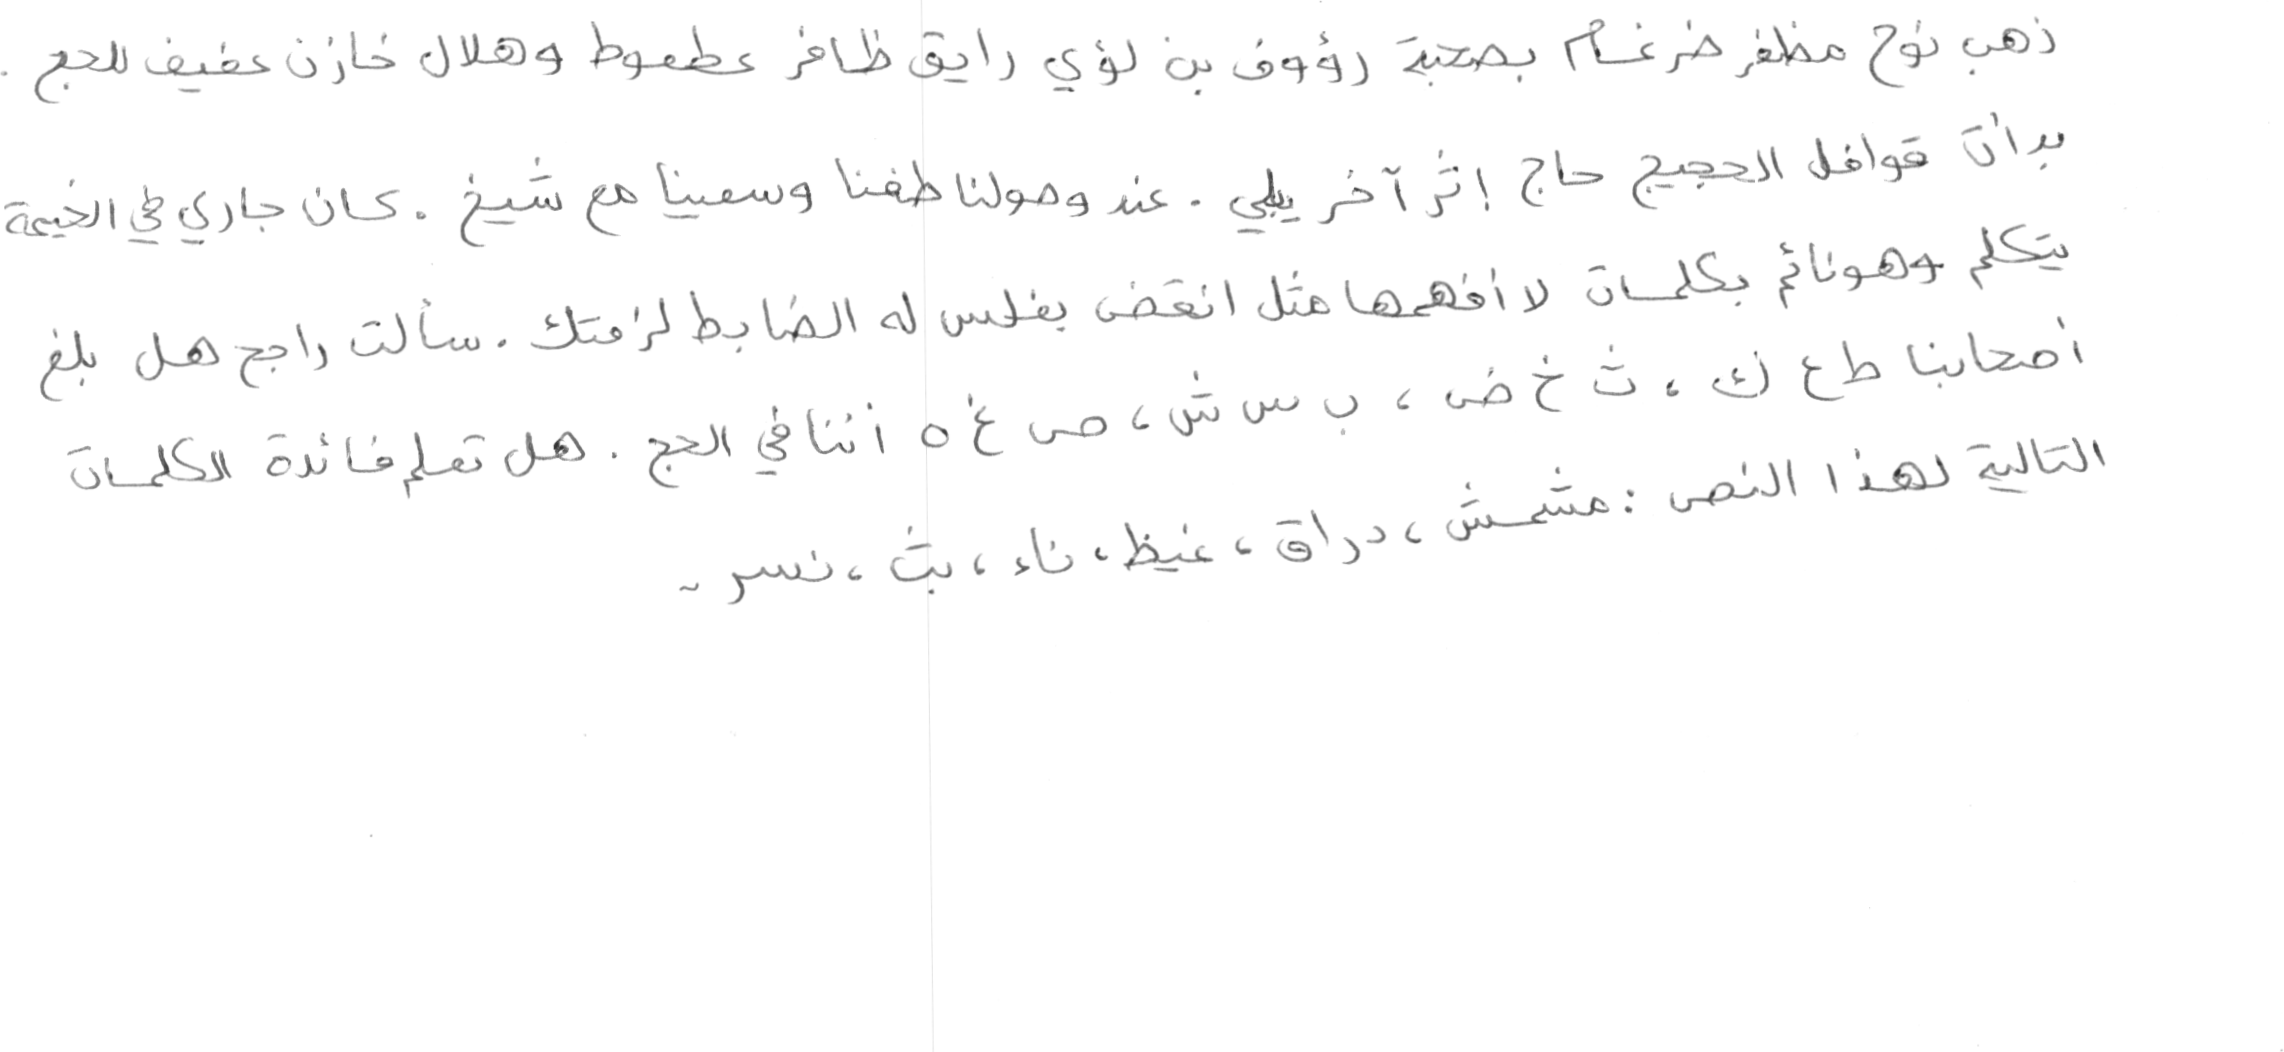 ذهب نوح مظفر ضرغام بصحبة رؤوف بن لؤي رايق ظافر عطعوط وهلال خازن عفيف للحج .
بدأت قوافل الحجيج حاج إثر آخر يلبي . عند وصولنا طفنا وسعينا مع شيخ . كان جاري في الخيمة
يتكلم وهو نائم بكلمات لا أفهمها مثل انقض بفلس له الضابط لزمتك . سألت راجح هل بلغ
أصحابنا ط ع ك ، ث خ ض ، ب س ش ، ص غ ه أننا في الحج . هل تعلم فائدة الكلمات
التالية لهذا النص : مشمش ، دراق ، غيظ ، ناء ، بث ، نسر .